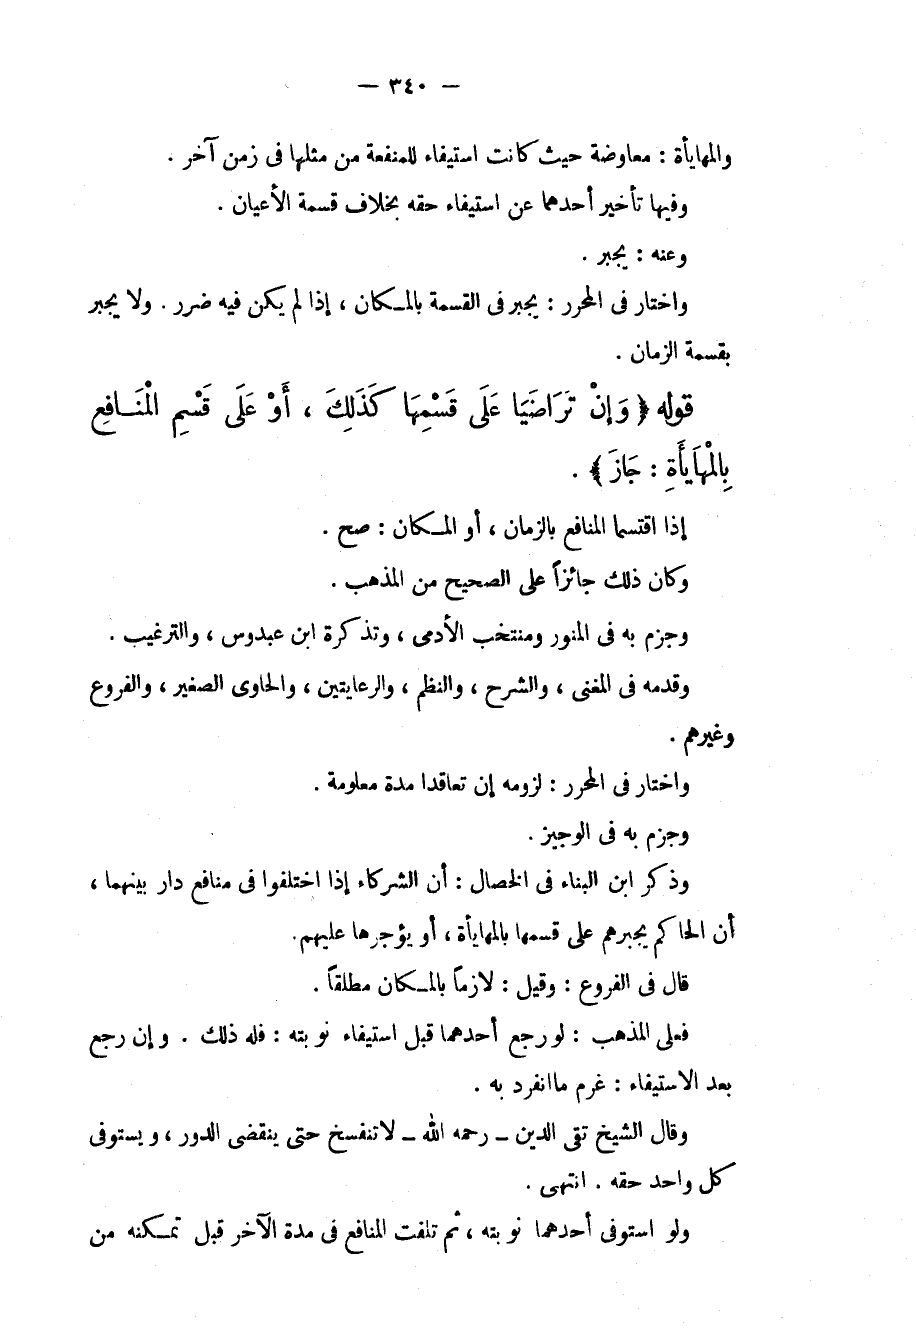 — ٣٤٠ —
والمهايأة : معاوضة حيث كانت استيفاء للمنفعة من مثلها فى زمن آخر .
وفيها تأخير أحدهما عن استيفاء حقه بخلاف قسمة الأعيان .
وعنه : يجبر .
واختار فى المحرر : يجبر فى القسمة بالمـكان ، إذا لم يكن فيه ضرر . ولا يجبر
بقسمة الزمان .
قوله ﴿ وَإِنْ تَرَاضَيَا عَلَى قَسْمِهَا كَذَلِكَ ، أَوْ عَلَى قَسْمِ الْمَنَـافِعِ
بِالْمُهَايَأَةِ : جَازَ ﴾ .
إذا اقتسما المنافع بالزمان ، أو المـكان : صح .
وكان ذلك جائزاً على الصحيح من المذهب .
وجزم به فى المنور ومنتخب الأدمى ، وتذكرة ابن عبدوس ، والترغيب .
وقدمه فى المغنى ، والشرح ، والنظم ، والرعايتين ، والحاوى الصغير ، والفروع
وغيرهم .
واختار فى المحرر : لزومه إن تعاقدا مدة معلومة .
وجزم به فى الوجيز .
وذكر ابن البناء فى الخصال : أن الشركاء إذا اختلفوا فى منافع دار بينهما ،
أن الحاكم يجبرهم على قسمها بالمهايأة ، أو يؤجرها عليهم.
قال فى الفروع : وقيل : لازماً بالمـكان مطلقاً .
فعلى المذهب : لو رجع أحدهما قبل استيفاء نوبته : فله ذلك . وإن رجع
بعد الاستيفاء : غرم ما انفرد به .
وقال الشيخ تقى الدين ــ رحمه الله ــ لا تنفسخ حتى ينقضى الدور ، ويستوفى
كل واحد حقه . انتهى .
ولو استوفى أحدهما نوبته ، ثم تلفت المنافع فى مدة الآخر قبل تمـكنه من